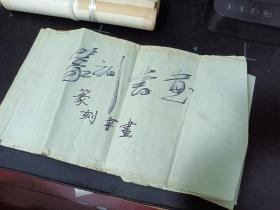 篆刻書畫
篆刻書畫